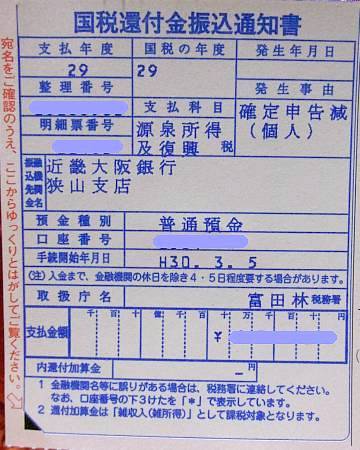 国税還付金振込通知書
支払年度 国税の年度 発生年月日
29 29
整理番号 支払科目 発生事由
明細票番号 源泉所得及復興 税 確定申告減(個人)
振込先金融機関名 近畿大阪銀行
狭山支店
預金種別 普通預金
口座番号
手続開始年月日 H30. 3. 5
(注)入金まで、金融機関の休日を除き4・5日程度要する場合があります。
取扱庁名 富田林 税務署
支払金額 千 百 十 億 千 百 十 万 千 百 十 円
¥
内還付加算金 ー 円
1 金融機関名等に誤りがある場合は、税務署に連絡してください。
なお、口座番号の下3けたを「*」で表示しています。
2 還付加算金は「雑収入(雑所得)」として課税対象となります。
宛名をご確認のうえ、ここからゆっくりとはがしてご覧ください。